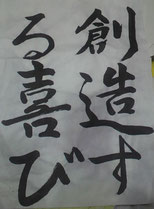 創造す
る喜び